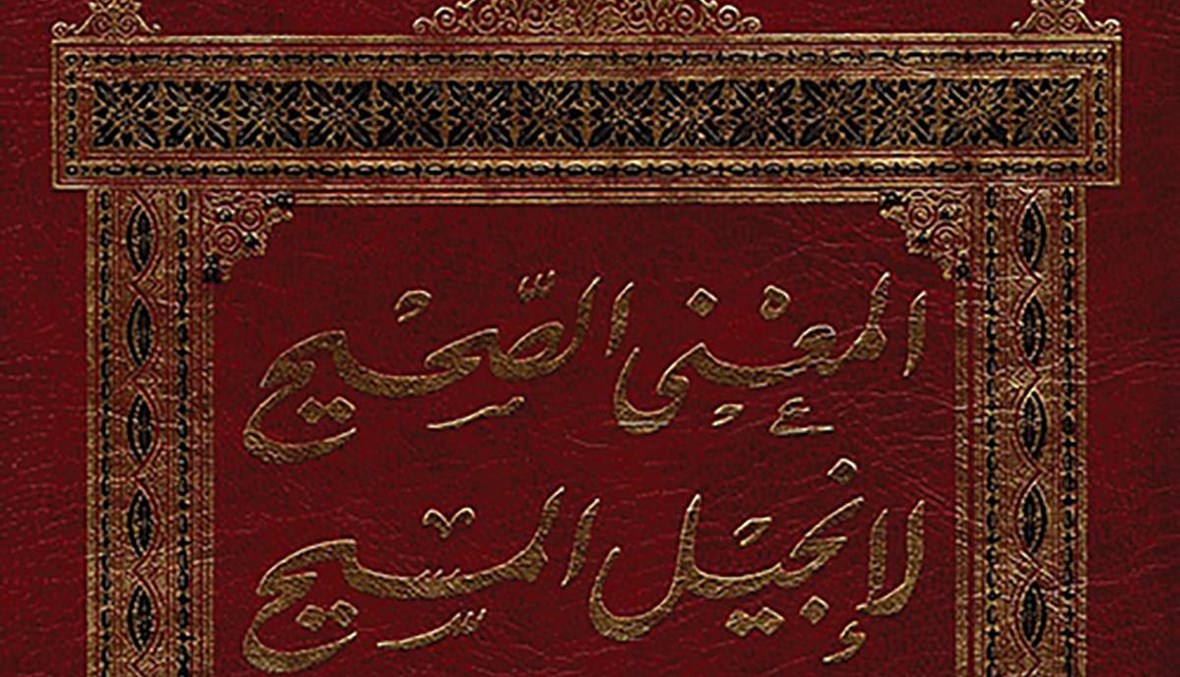 المعنى الصحيح
لإنجيل المسيح